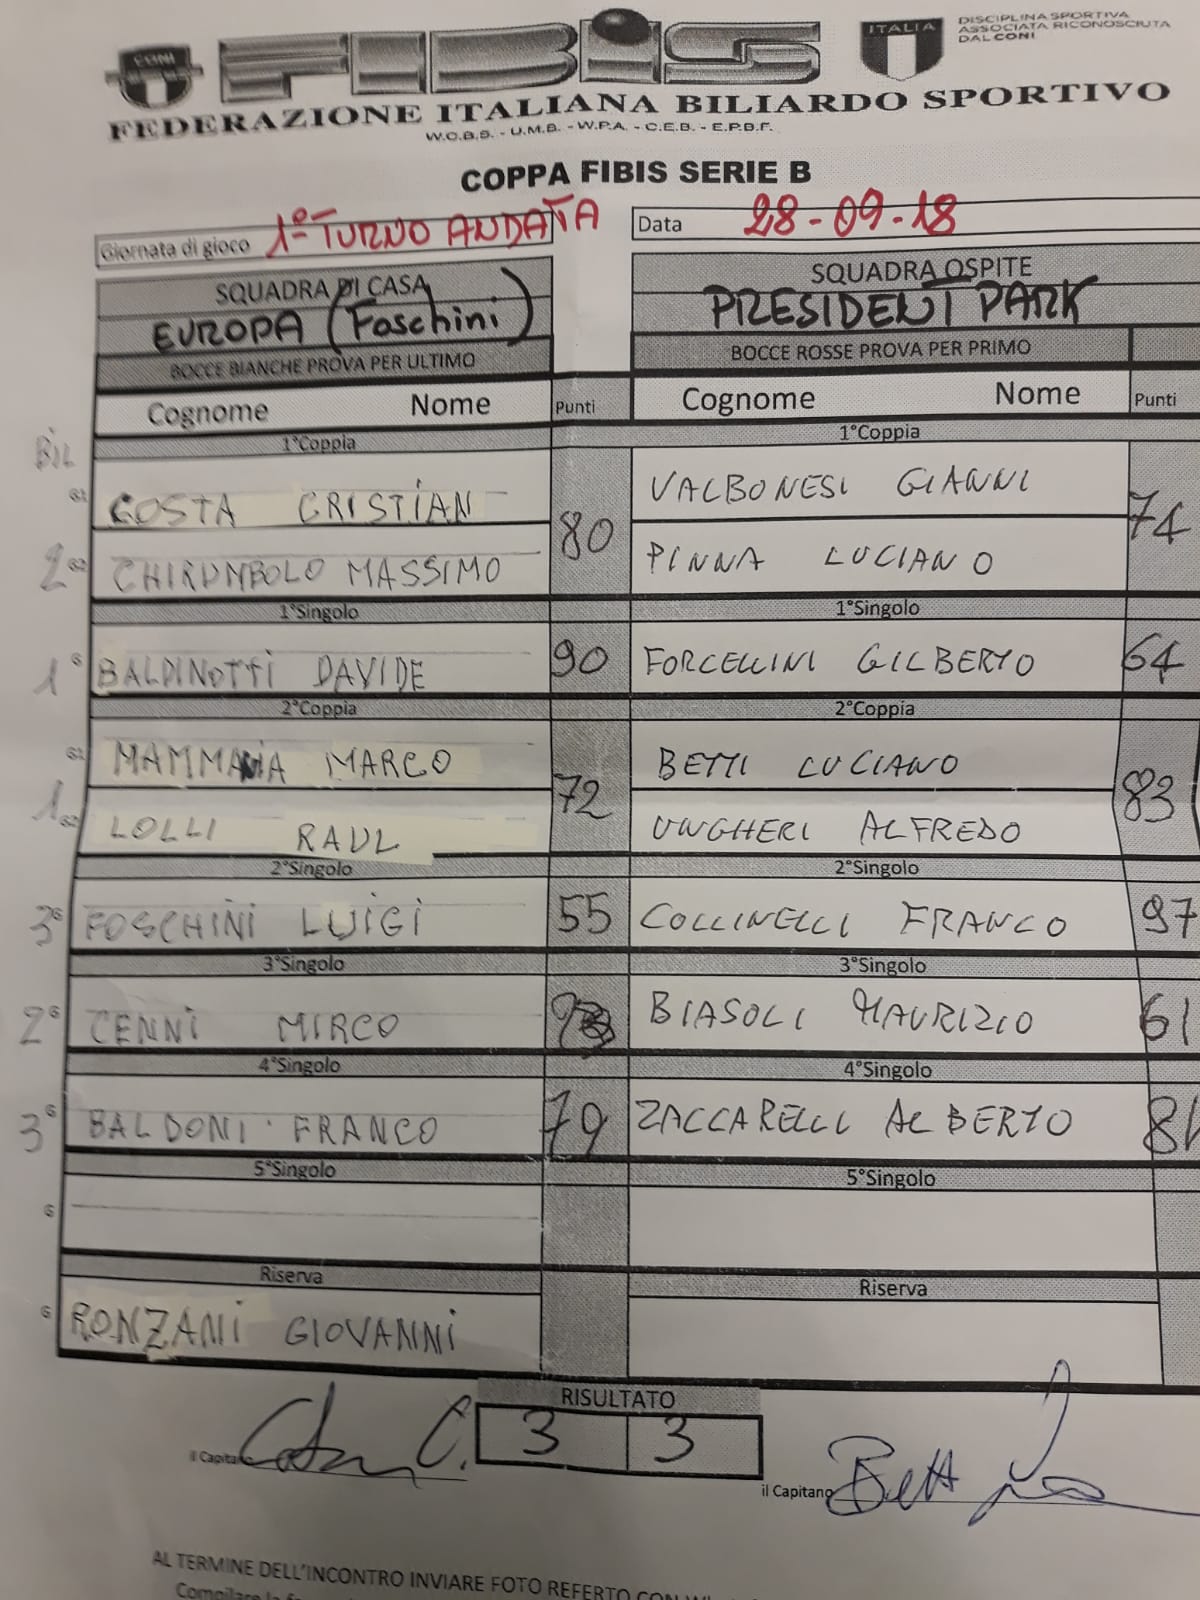 CONI FIBiS ITALIA DISCIPLINA SPORTIVA
ASSOCIATA RICONOSCIUTA
DAL CONI
FEDERAZIONE ITALIANA BILIARDO SPORTIVO
W.C.B.S. - U.M.B. - W.P.A. - C.E.B. - E.P.B.F.
COPPA FIBIS SERIE B
Giornata di gioco 1° TURNO ANDATA Data 28-09-18
SQUADRA DI CASA SQUADRA OSPITE
EUROPA (Foschini) PRESIDENT PARK
BOCCE BIANCHE PROVA PER ULTIMO BOCCE ROSSE PROVA PER PRIMO
Cognome Nome Punti Cognome Nome Punti
BiL 1°Coppia 1°Coppia
G1 COSTA CRISTIAN 80 VALBONESI GIANNI 74
2 G2 CHIRUMBOLO MASSIMO PINNA LUCIANO
1°Singolo 1°Singolo
1 G BALDINOTTI DAVIDE 90 FORCELLINI GILBERTO 64
2°Coppia 2°Coppia
G1 MAMMANA MARCO 72 BETTI LUCIANO 83
1 G2 LOLLI RAUL UNGHERI ALFREDO
2°Singolo 2°Singolo
3 G FOSCHINI LUIGI 55 COLLINELLI FRANCO 97
3°Singolo 3°Singolo
2 G CENNI MIRCO BIASOLI MAURIZIO 61
4°Singolo 4°Singolo
3 G BALDONI FRANCO 79 ZACCARELLI ALBERTO
5°Singolo 5°Singolo
G
Riserva Riserva
G RONZANI GIOVANNI
RISULTATO
il Capitano 3 3 il Capitano
AL TERMINE DELL'INCONTRO INVIARE FOTO REFERTO CON
Compilare la